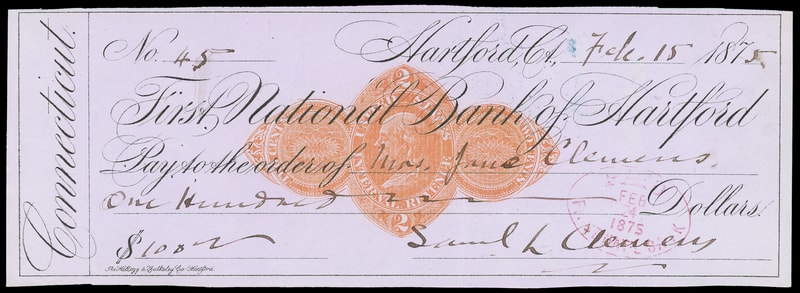 Connecticut.
No. 45 Hartford, Ct., Feb. 15 1875
First National Bank of Hartford
Pay to the order of Mrs. Jane Clemens
One Hundred Dollars.
$100
Saml L Clemens
The Kellogg & Bulkeley Co. Hartford.
2
2
FEB
24
1875